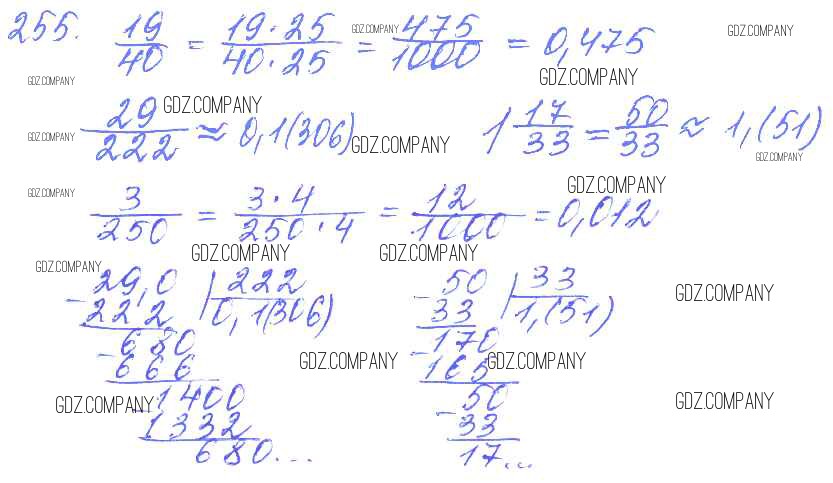 255. 19/40 = 19·25/40·25 = 475/1000 = 0,475
GDZ.COMPANY GDZ.COMPANY GDZ.COMPANY GDZ.COMPANY
29/222 ≈ 0,1(306) 1 17/33 = 50/33 ≈ 1,(51)
GDZ.COMPANY GDZ.COMPANY GDZ.COMPANY GDZ.COMPANY
3/250 = 3·4/250·4 = 12/1000 = 0,012
GDZ.COMPANY GDZ.COMPANY GDZ.COMPANY GDZ.COMPANY
GDZ.COMPANY
29,0 | 222 50 | 33
- 222 0,1(306) - 33 1,(51)
GDZ.COMPANY
680 170
- 666 - 165
GDZ.COMPANY GDZ.COMPANY
1400 50
- 1332 - 33
GDZ.COMPANY GDZ.COMPANY
680... 17...